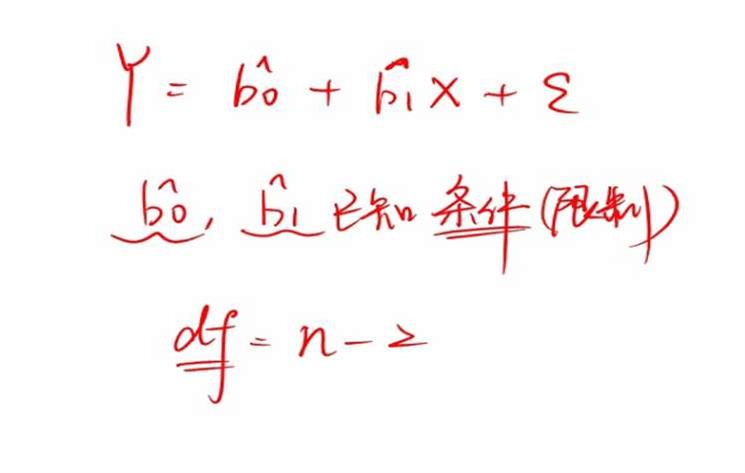 Y = b̂0 + b̂1 X + ε
b̂0, b̂1 已知 条件 (限制)
df = n - 2